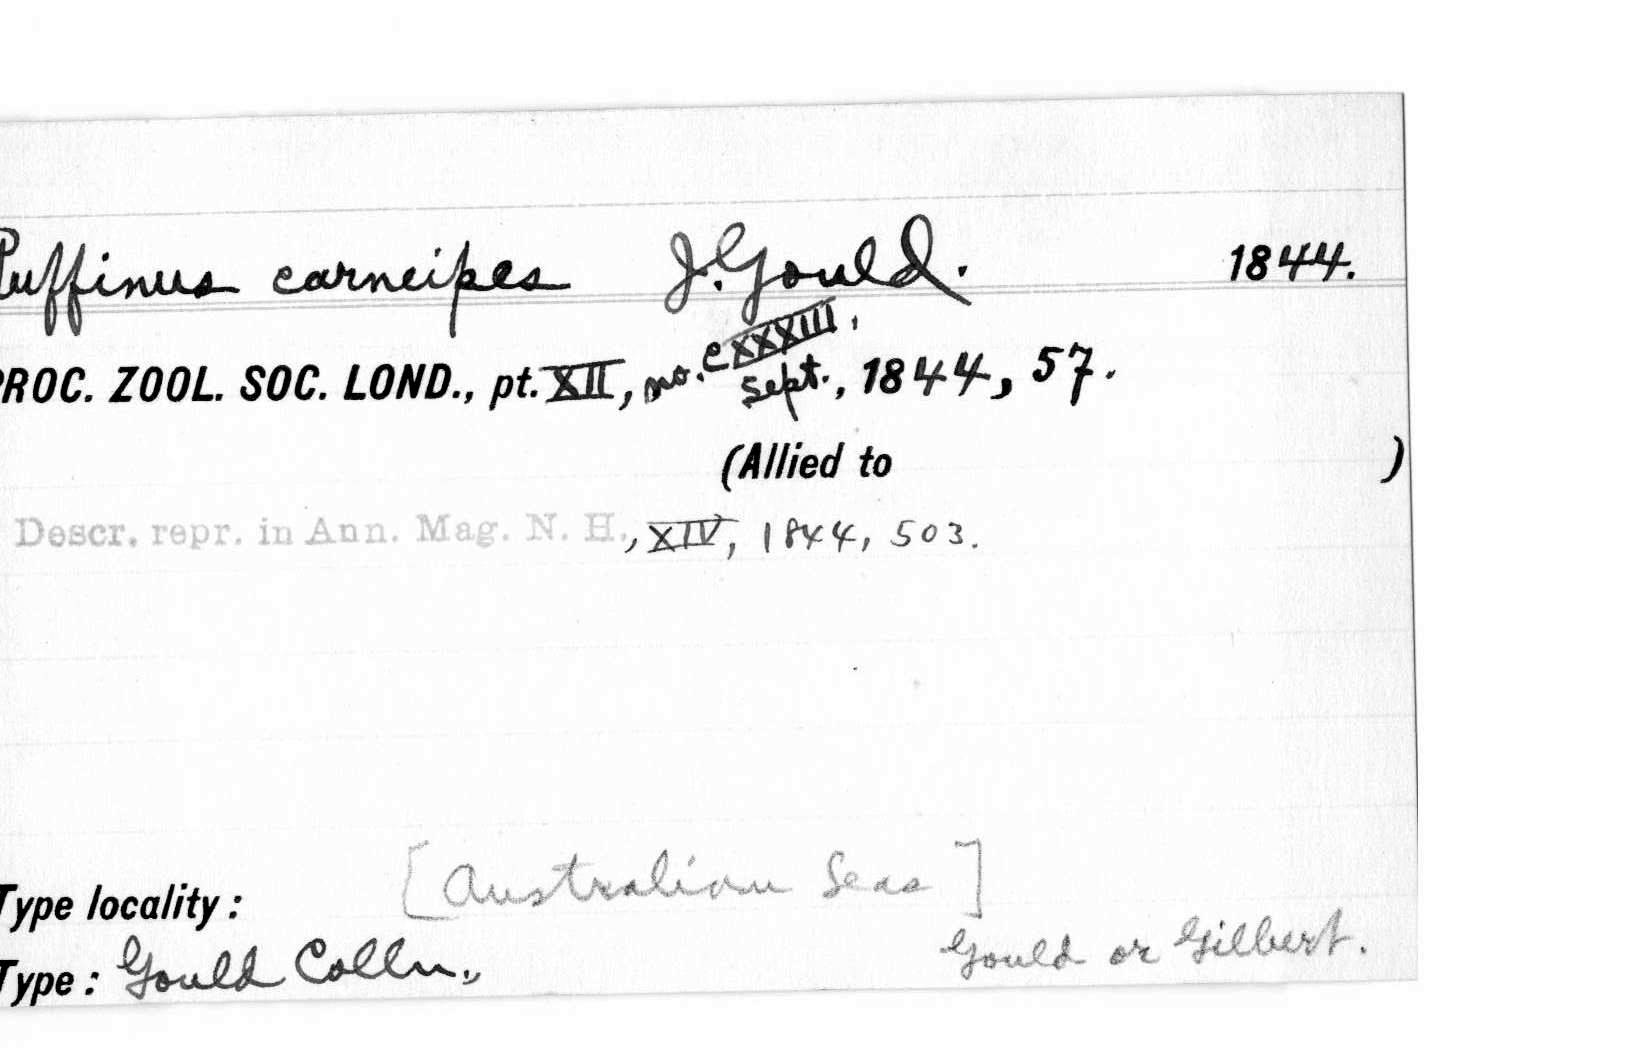 Puffinus carneipes J. Gould. 1844.
PROC. ZOOL. SOC. LOND., pt. XII, no. CXXXIII, Sept., 1844, 57.
(Allied to )
Descr. repr. in Ann. Mag. N. H., XIV, 1844, 503.
Type locality: [Australian Seas]
Type: Gould Colln., Gould or Gilbert.